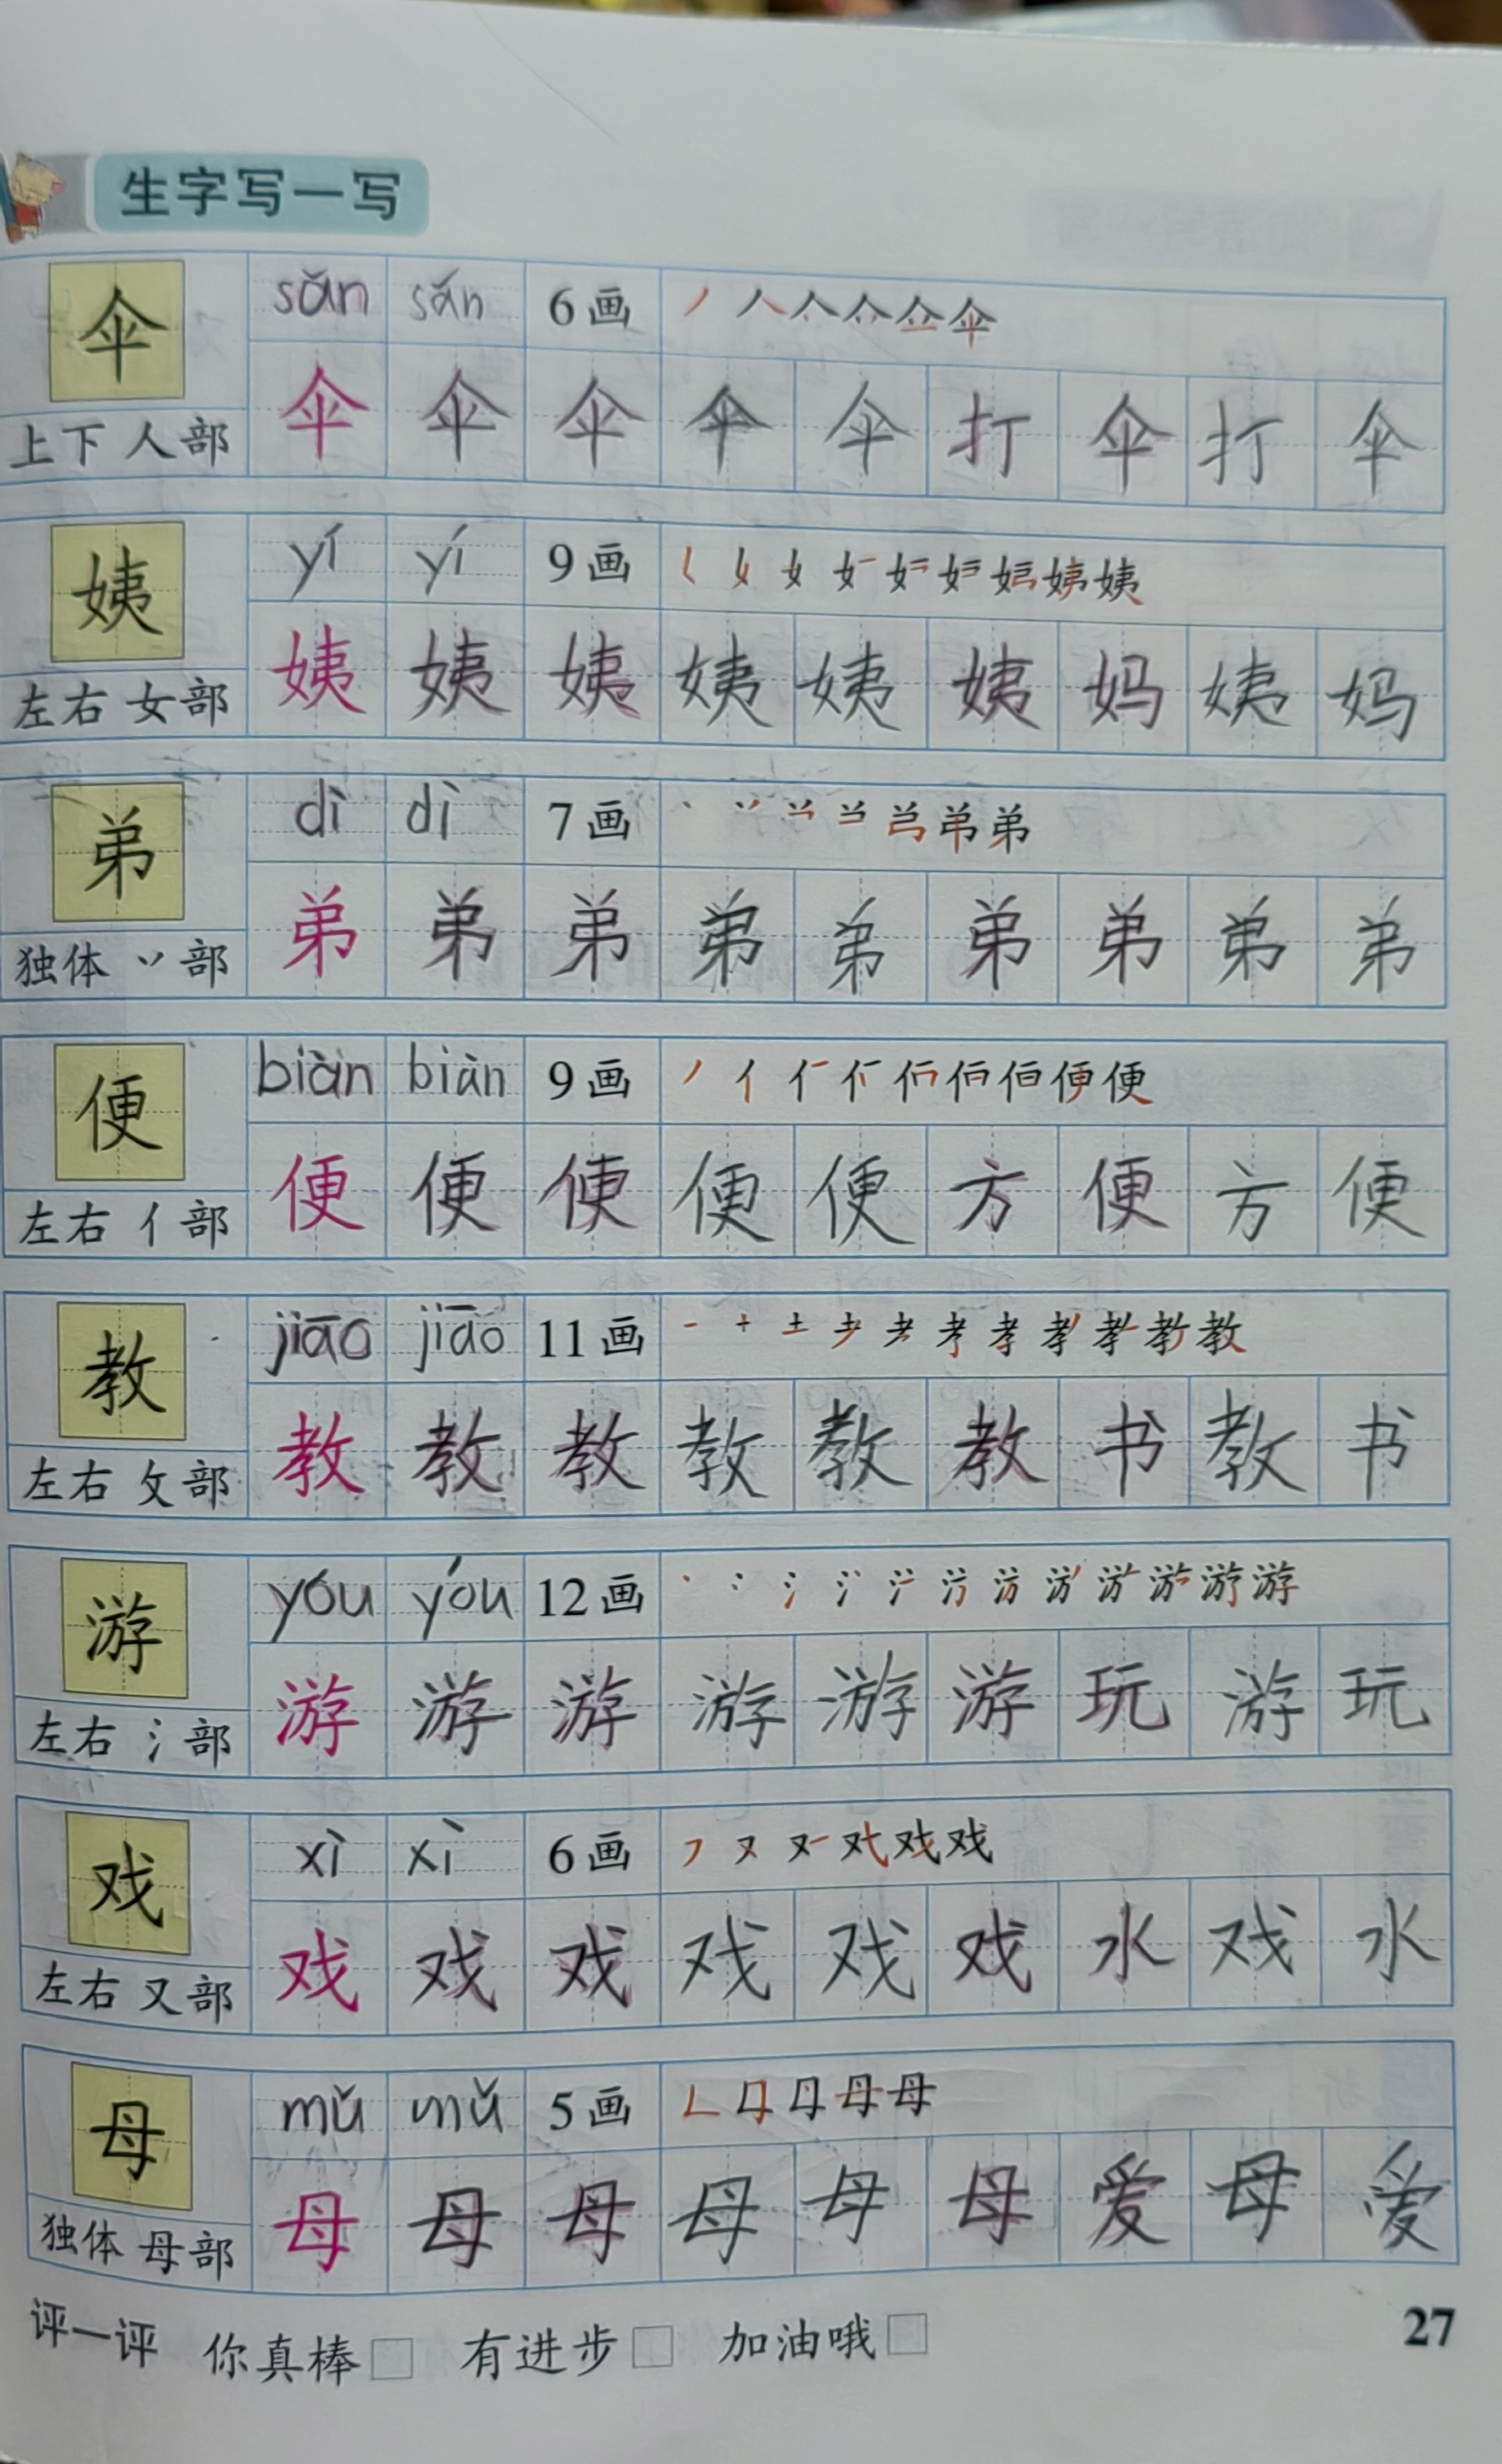 生字写一写
伞 sǎn sǎn 6画 丿 人 伞
上下 人部 伞 伞 伞 伞 伞 打 伞 打 伞
姨 yí yí 9画 姨
左右 女部 姨 姨 姨 姨 姨 姨 妈 姨 妈
弟 dì dì 7画 丶 丷 弟 弟
独体 丷部 弟 弟 弟 弟 弟 弟 弟 弟 弟
便 biàn biàn 9画 丿 亻 便 便
左右 亻部 便 便 便 便 便 方 便 方 便
教 jiāo jiāo 11画 一 十 土 耂 孝 教 教
左右 攵部 教 教 教 教 教 教 书 教 书
游 yóu yóu 12画 丶 冫 氵 游 游
左右 氵部 游 游 游 游 游 游 玩 游 玩
戏 xì xì 6画 ㇇ 又 戏 戏
左右 又部 戏 戏 戏 戏 戏 戏 水 戏 水
母 mǔ mǔ 5画 母 母
独体 母部 母 母 母 母 母 母 爱 母 爱
评一评 你真棒□ 有进步□ 加油哦□ 27